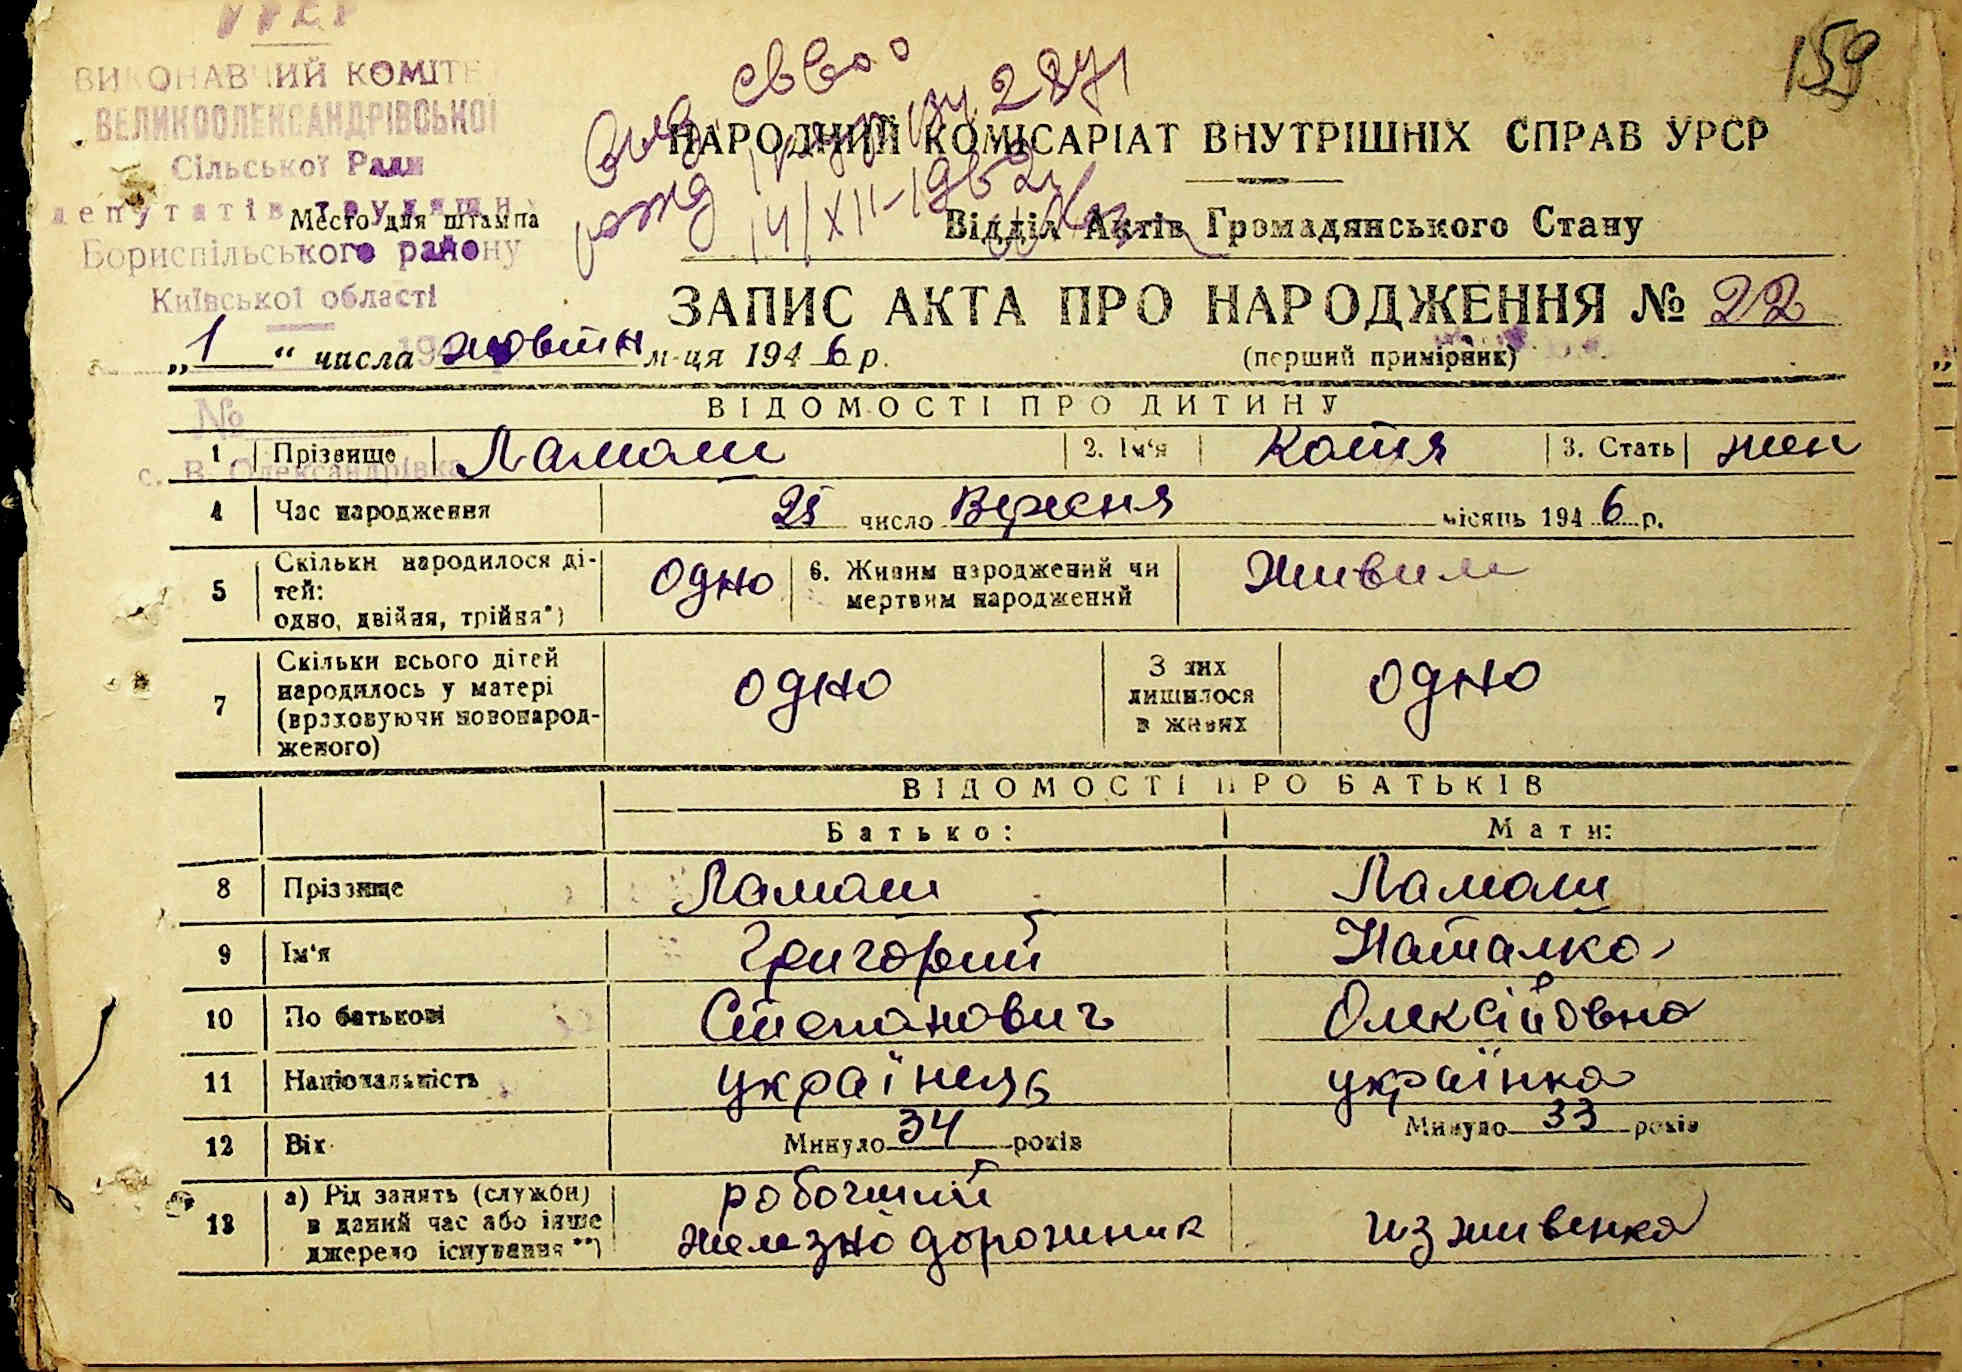 159
УРСР
ВИКОНАВЧИЙ КОМІТЕТ
ВЕЛИКООЛЕКСАНДРІВСЬКОЇ
Сільської Ради
депутатів трудящих
Место для штампа
Бориспільського району
Київської області
НАРОДНИЙ КОМІСАРІАТ ВНУТРІШНІХ СПРАВ УРСР
14/XII-1962
Відділ Актів Громадянського Стану
ЗАПИС АКТА ПРО НАРОДЖЕННЯ № 22
„1“ числа жовтн м-ця 1946 р. (перший примірник)
ВІДОМОСТІ ПРО ДИТИНУ
№
с. В. Олександрівка
1 Прізвище Ламаш 2. Ім‘я Катя 3. Стать жен
4 Час народження 25 число Вересня місяць 1946 р.
5 Скільки народилося ді-
тей:
одно, двійня, трійня*) одно 6. Живим народжений чи
мертвим народжений Живим
7 Скільки всього дітей
народилось у матері
(враховуючи новонарод-
женого) одно З них
лишилося
в живих одно
ВІДОМОСТІ ПРО БАТЬКІВ
Батько: Мати:
8 Прізвище Ламаш Ламаш
9 Ім‘я Григорий Наталка
10 По батькові Степанович Олексійовна
11 Національність українець українка
12 Вік Минуло 34 років Минуло 33 років
13 а) Рід занять (служби)
в даний час або інше
джерело існування**) робочий
железнодорожник изживенка